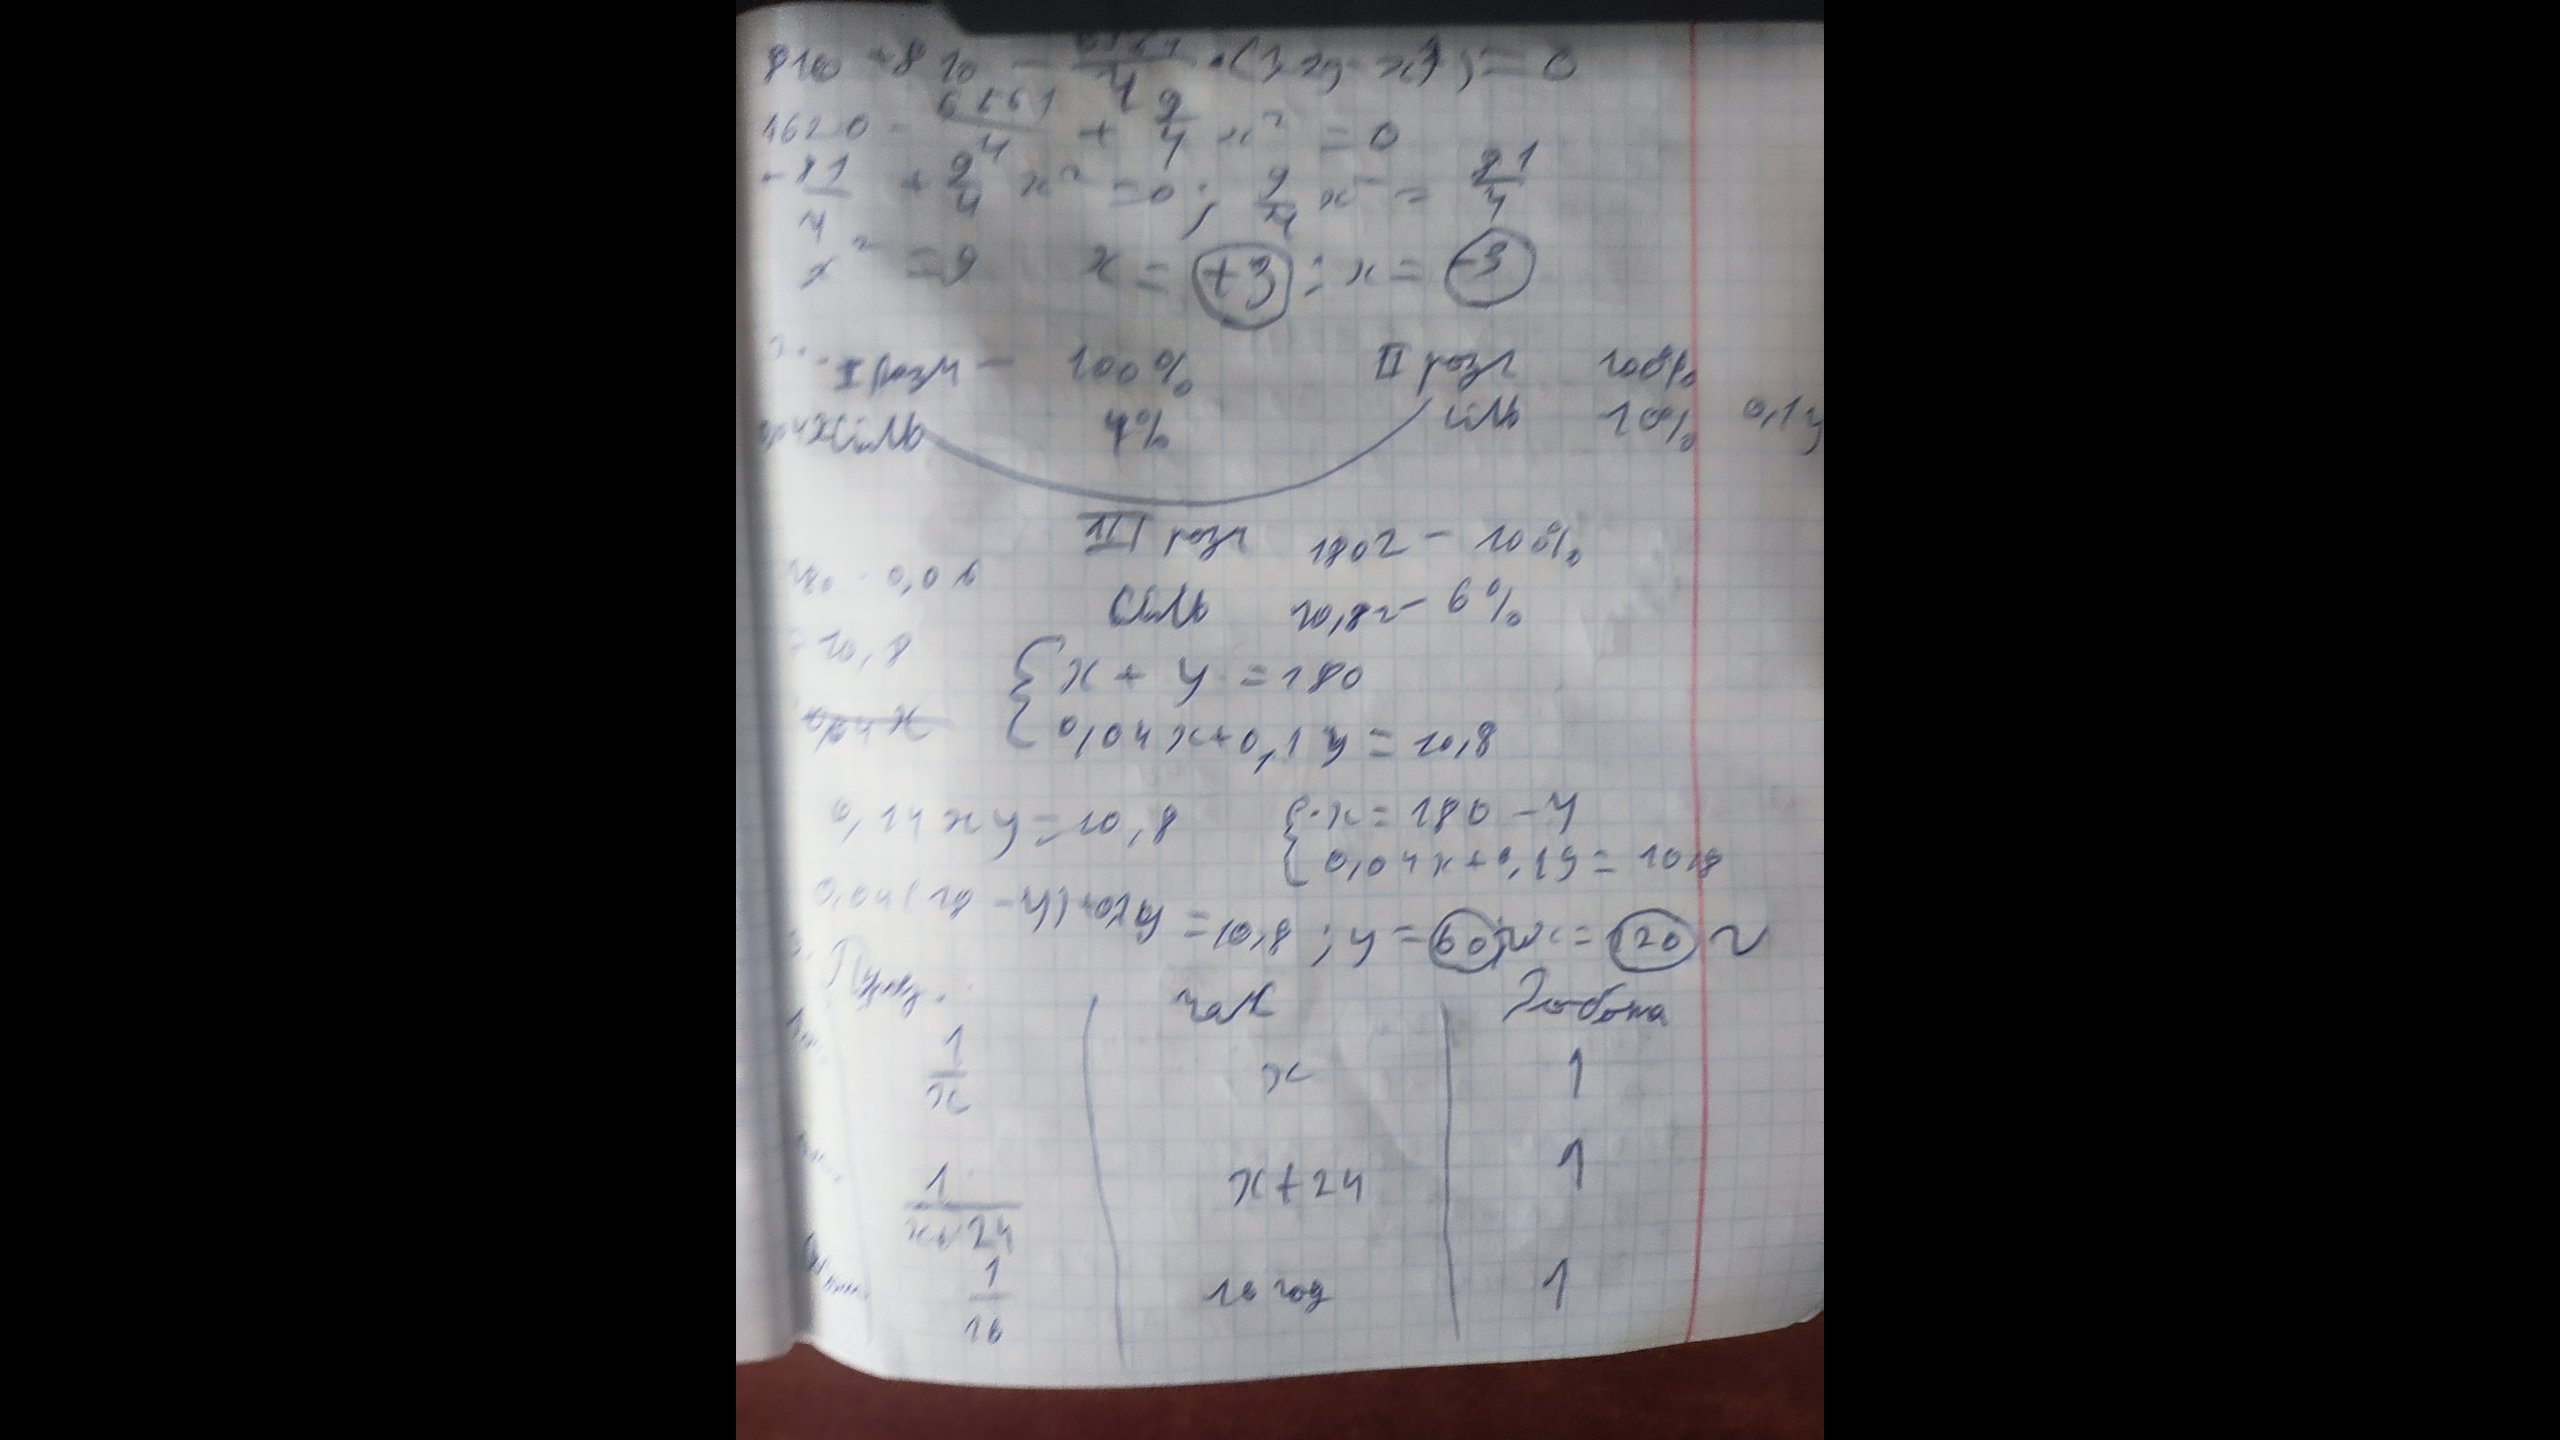 810 + 810 - 6561/4 · ( ) = 0
1620 - 6561/4 + 9/4 x² = 0
- 81/4 + 9/4 x² = 0; 9/4 x² = 81/4
x² = 9 x = +3; x = -3
I розч - 100% II розч 100%
0,04x Сіль 4% Сіль 10% 0,1y
III розч 180г - 100%
180 · 0,06
Сіль 10,8г - 6%
= 10,8
x + y = 180
0,04x
0,04x + 0,1y = 10,8
0,14xy = 10,8 x = 180 - y
0,04x + 0,1y = 10,8
= 10,8; y = 60 x = 120 г
час Робота
1/x x 1
1/x+24 x+24 1
1/16 16 год 1